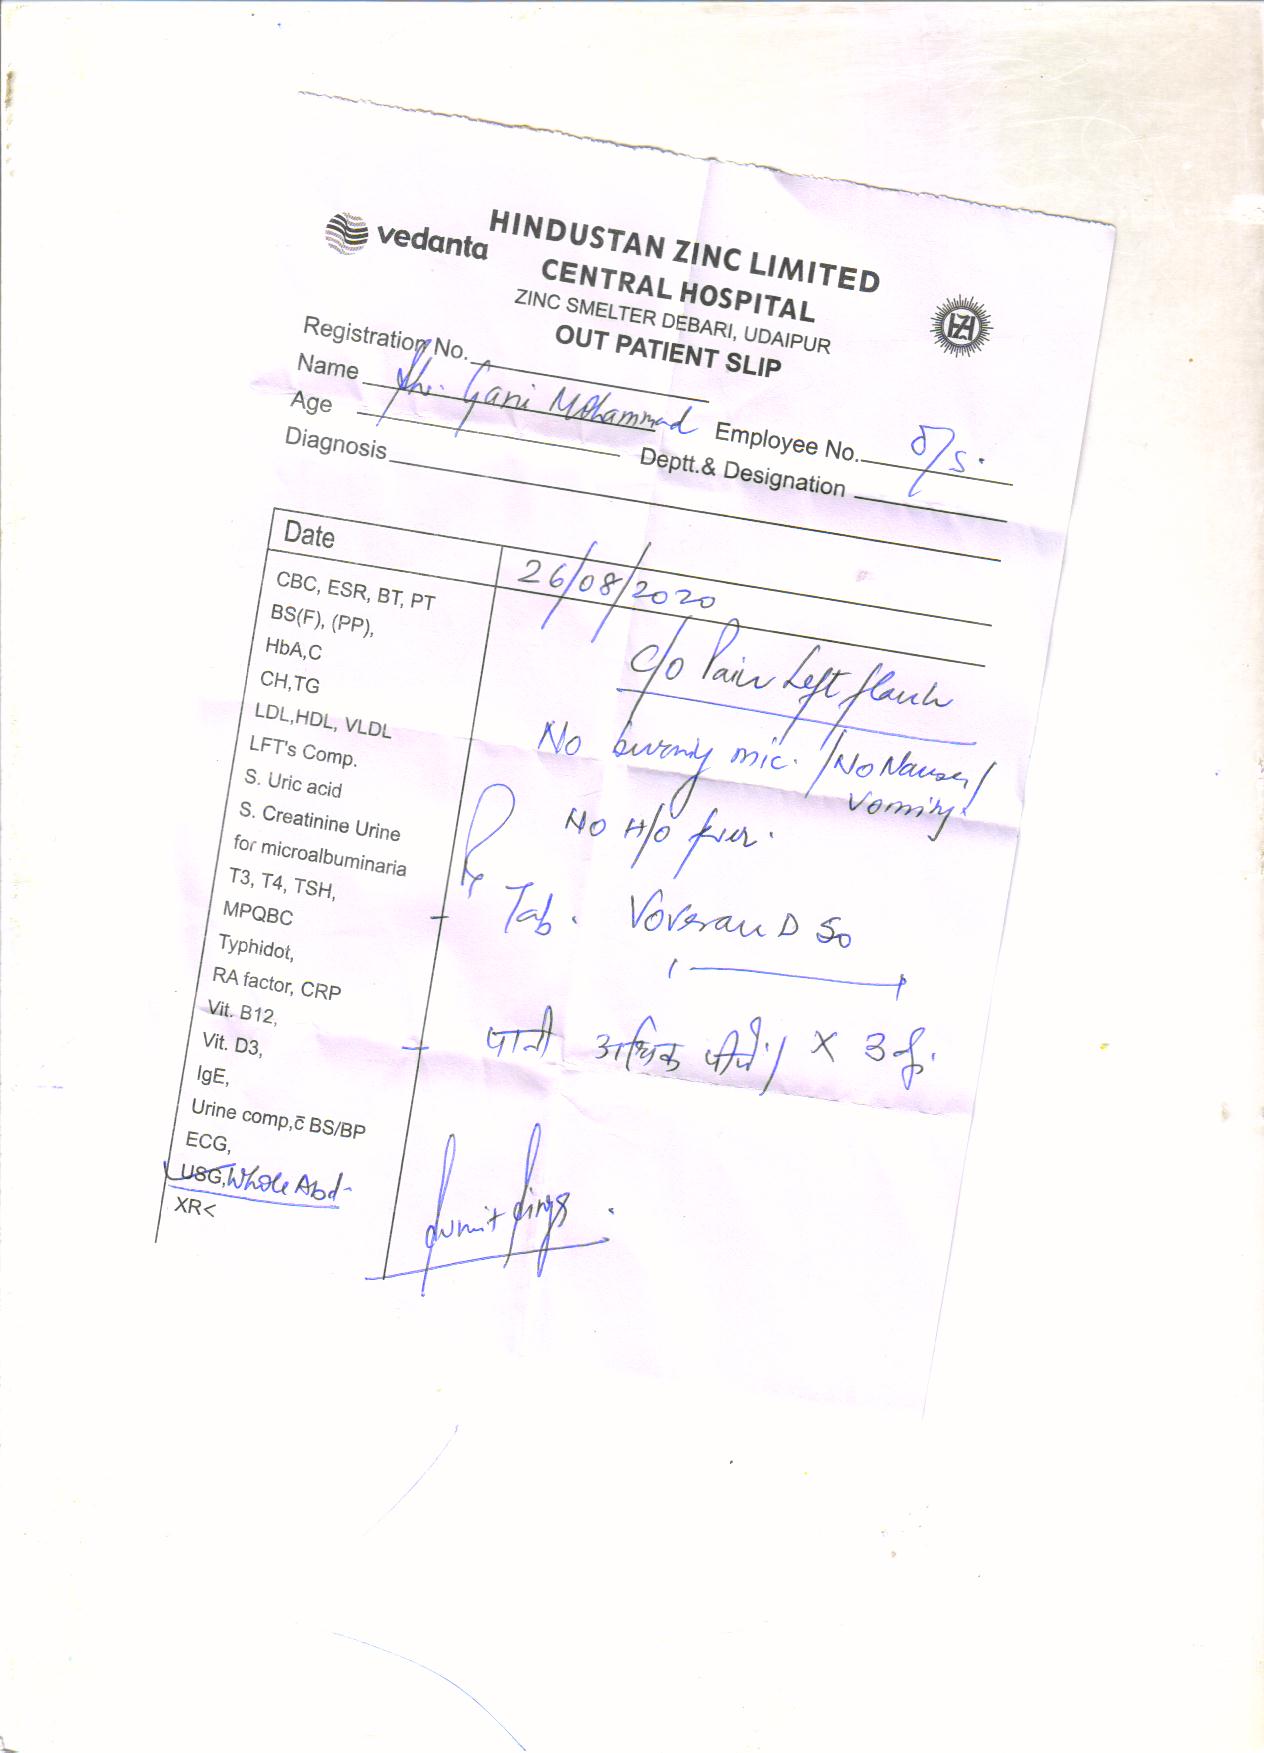 vedanta
HINDUSTAN ZINC LIMITED
CENTRAL HOSPITAL
ZINC SMELTER DEBARI, UDAIPUR
OUT PATIENT SLIP
Registration No.
Name Shri. Gani Mohammad Employee No. O/S.
Age Deptt.& Designation
Diagnosis
Date 26/08/2020
CBC, ESR, BT, PT
BS(F), (PP),
HbA,C
CH,TG
LDL,HDL, VLDL
LFT's Comp.
S. Uric acid
S. Creatinine Urine
for microalbuminaria
T3, T4, TSH,
MPQBC
Typhidot,
RA factor, CRP
Vit. B12,
Vit. D3,
IgE,
Urine comp,c̄ BS/BP
ECG,
USG, Whole Abd-
XR<
C/O Pain Left flank
No burning mic. / No Nausea/
Vomiting.
No H/O fever.
Rx
Tab. Voveran D 50
पानी अधिक पीयें/ X 3
Sumit Singh